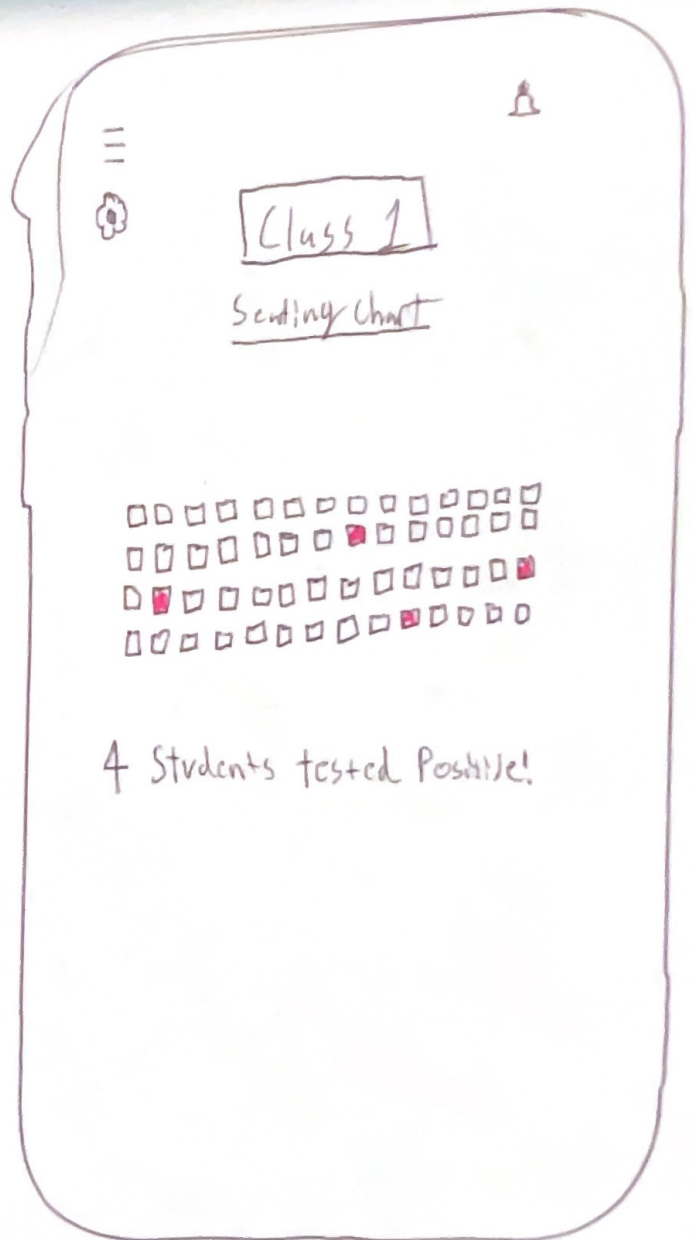 Class 1
Seating Chart
4 Students tested Positive!